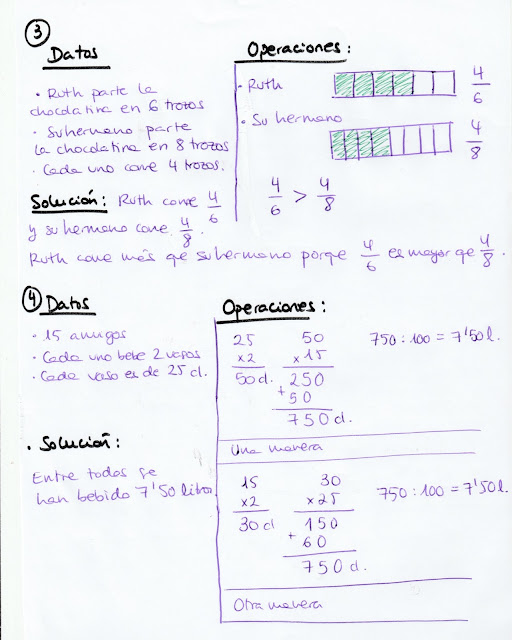 3
Datos
· Ruth parte la
chocolatina en 6 trozos
· Su hermano parte
la chocolatina en 8 trozos
· Cada uno come 4 trozos.
Solución: Ruth come 4/6
y su hermano come 4/8.
Ruth come más que su hermano porque 4/6 es mayor que 4/8.
Operaciones:
· Ruth 4/6
· Su hermano 4/8
4/6 > 4/8
4 Datos
· 15 amigos
· Cada uno bebe 2 vasos
· Cada vaso es de 25 cl.
· Solución:
Entre todos se
han bebido 7'50 litros.
Operaciones:
25 50 750 : 100 = 7'50 l.
x2 x15
50 cl. 250
+ 50
750 cl.
Una manera
15 30
x2 x25 750 : 100 = 7'50 l.
30 cl 150
+ 60
750 cl.
Otra manera